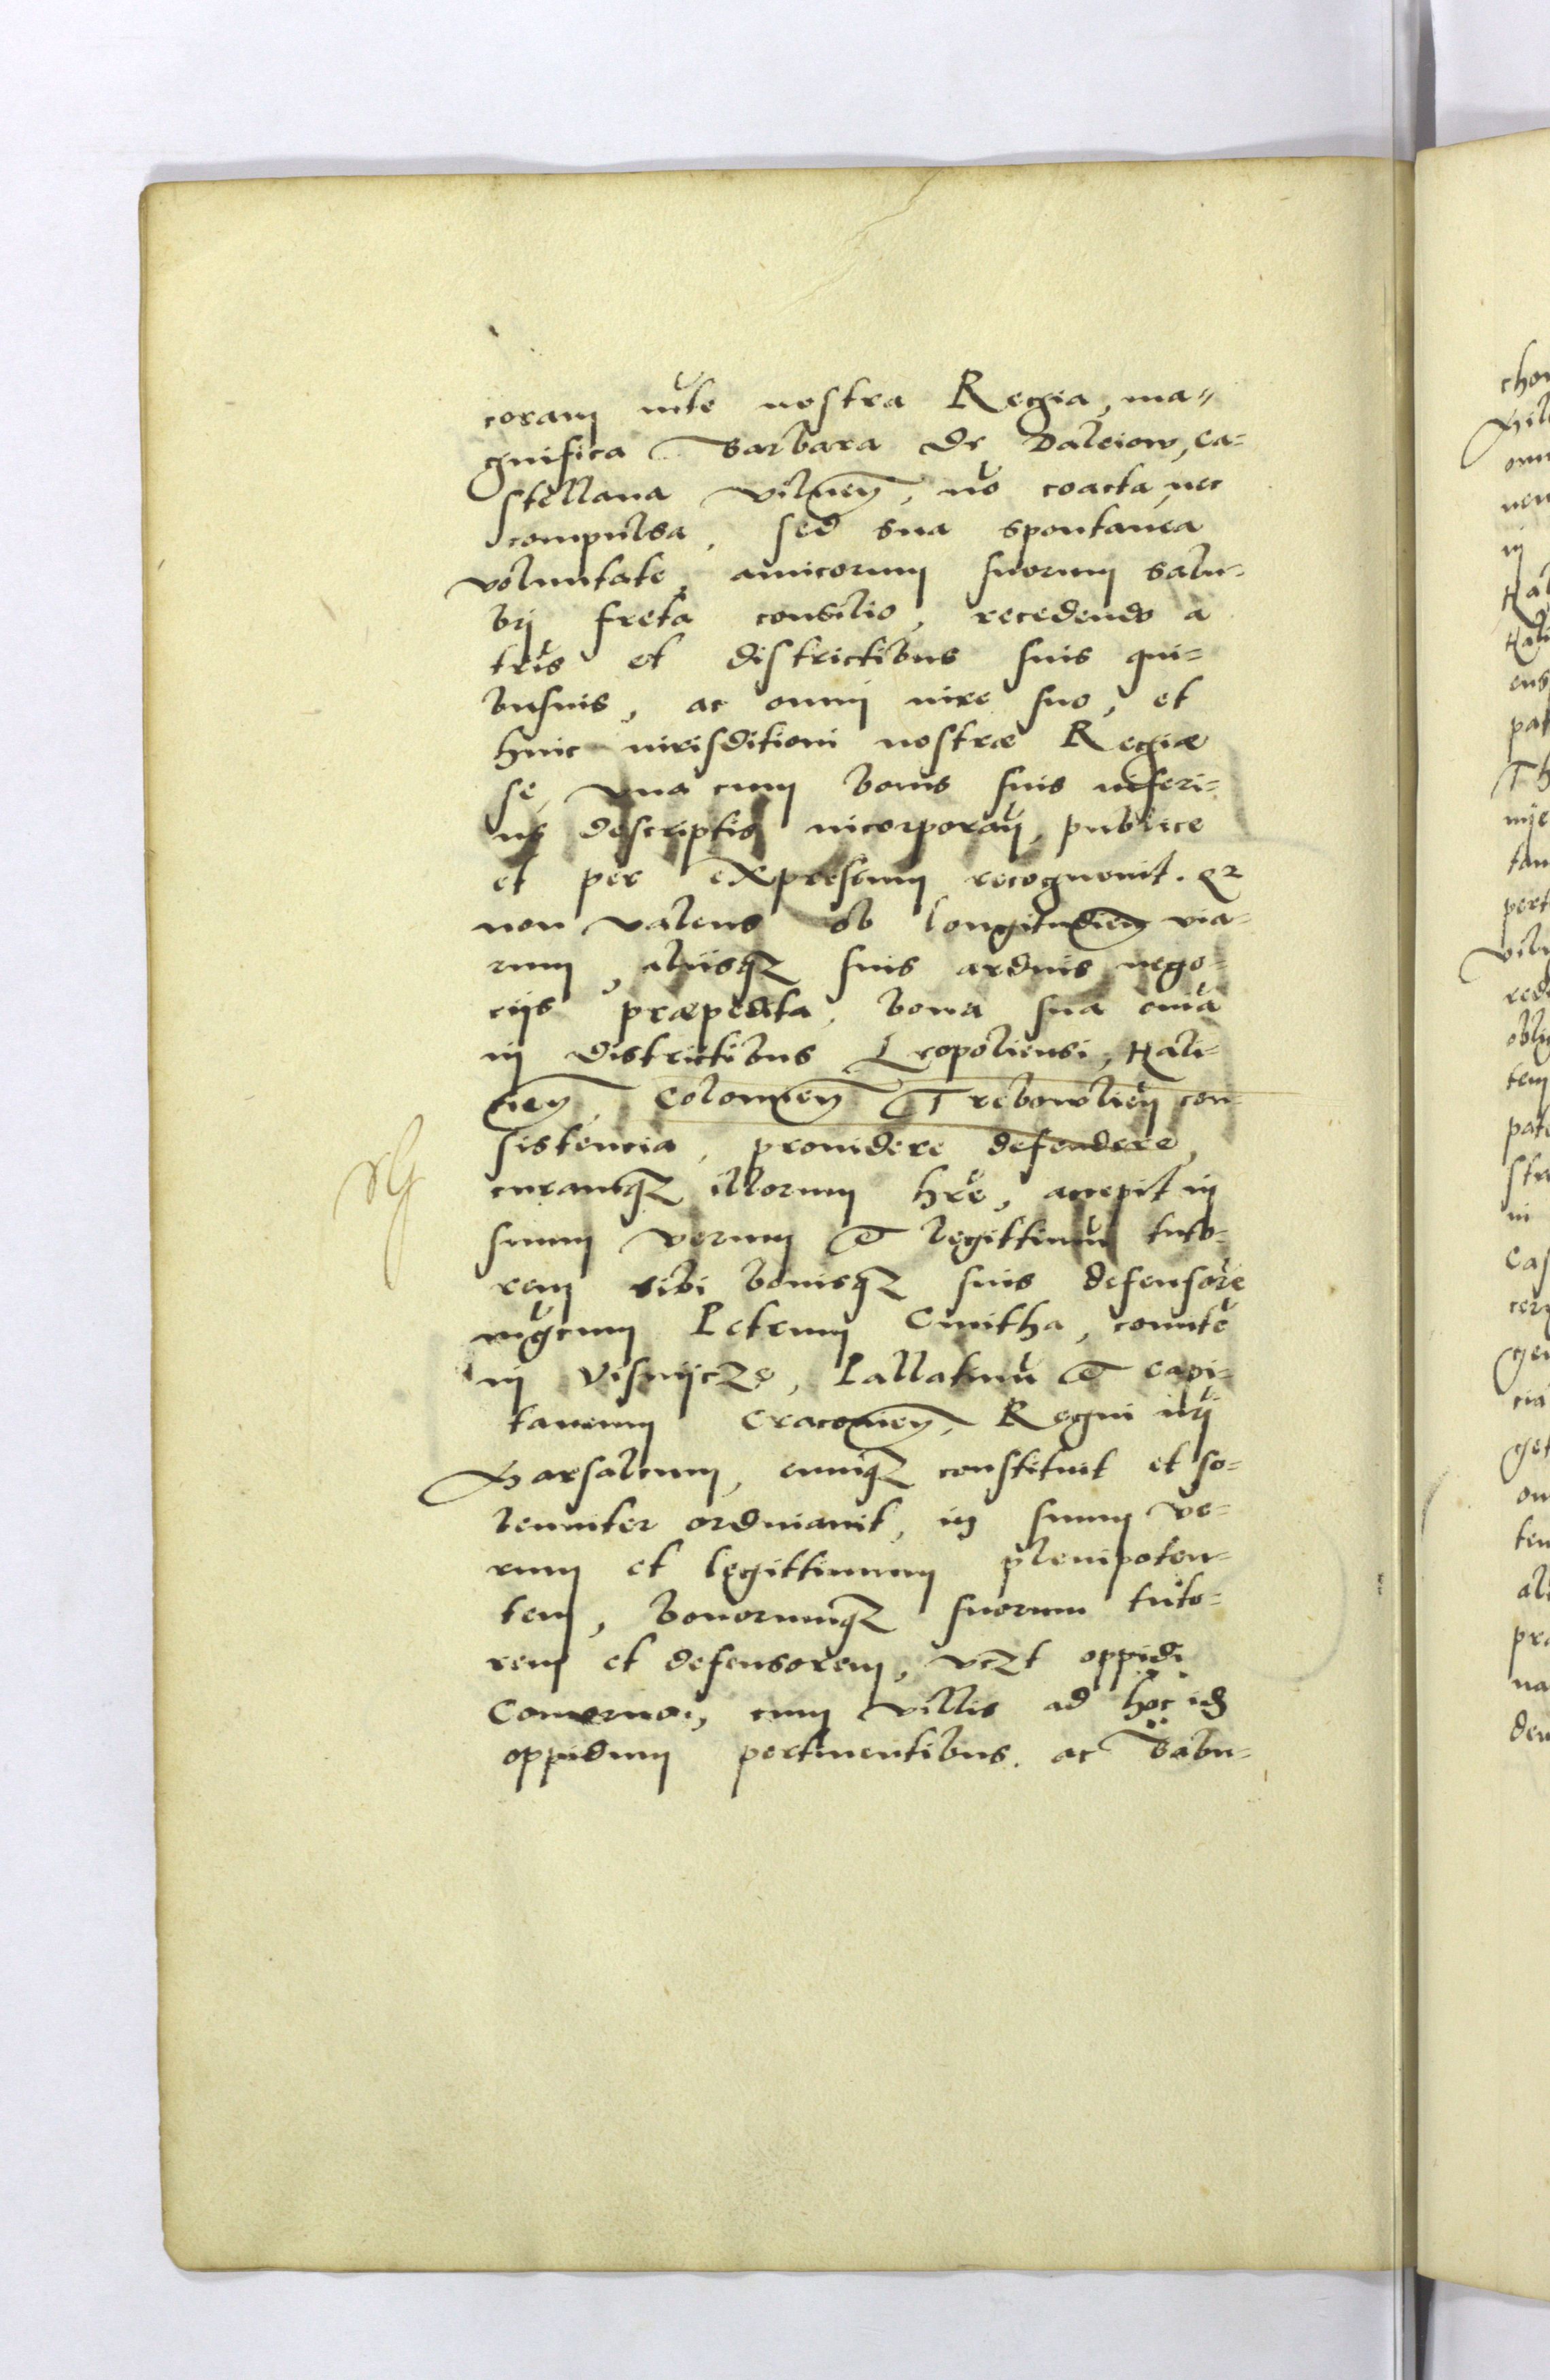 coram mte nostra Regia, ma=
gnifica Barbara de Daleiow, ca=
stellana vilnen̄, nō coacta nec
compulsa, sed sua spontanea
voluntate, amicorum suorum salu=
bri freta consilio, recedendo a
tris et districtibus suis qui=
busuis, ac omni iure suo, et
huic iurisditioni nostræ Regiæ
se, vna cum bonis suis inferi=
us descriptis incorporan, publice
et per expressum recognouit. Q2
non valens ob longitudien̄ via=
rum, aliisq3 suis arduis nego=
ciis præpedita, bona sua omīa
in districtibus Leopoliensi, Hali=
cien̄, Colomien̄ Trebowlien̄ con=
sistencia, prouidere defendere,
curamq3 illorum hre, accepit in
suum verum et legittimū tuto=
rem sibi bonisq3 suis defensorē
mgcum Petrum Cmitha, comitē
in Visnijcze, Pallatinū et capi=
taneum Cracouien̄, Regni nri
Marsalcum, eumq3 constituit et so=
lenniter ordinauit, in suum ve=
rum et legittimum plenipoten=
tem, bonorumq3 suorum tuto=
rem et defensorem, vczt oppidi
cum villis ad hoc idē
oppidum pertinentibus. ac Babu=